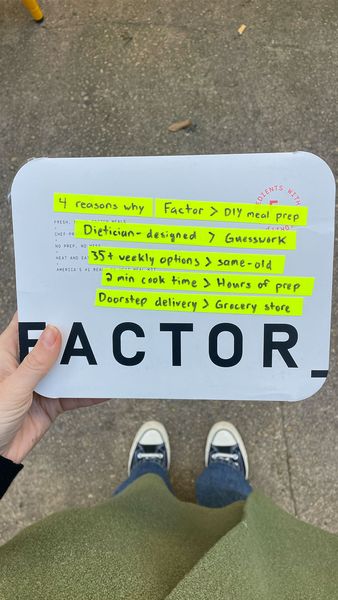 4 reasons why Factor > DIY meal prep
Dietician-designed > Guesswork
35+ weekly options > same-old
2 min cook time > Hours of prep
Doorstep delivery > Grocery store
FRESH,
CHEF-PR
NO PREP, NO MESS
HEAT AND EA
AMERICA'S #1 REA
EDIENTS WITH
FACTOR_